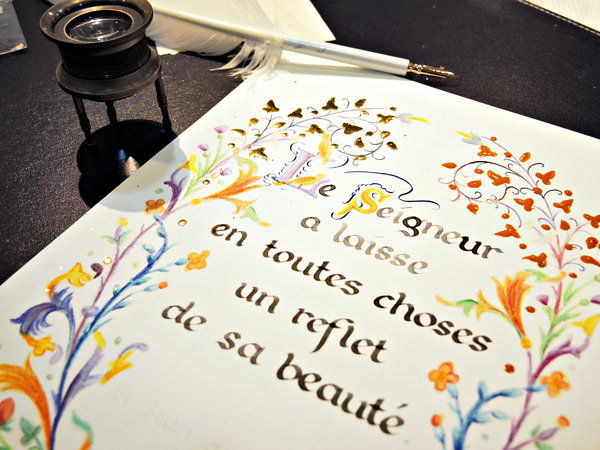 Le Seigneur
a laissé
en toutes choses
un reflet
de sa beauté